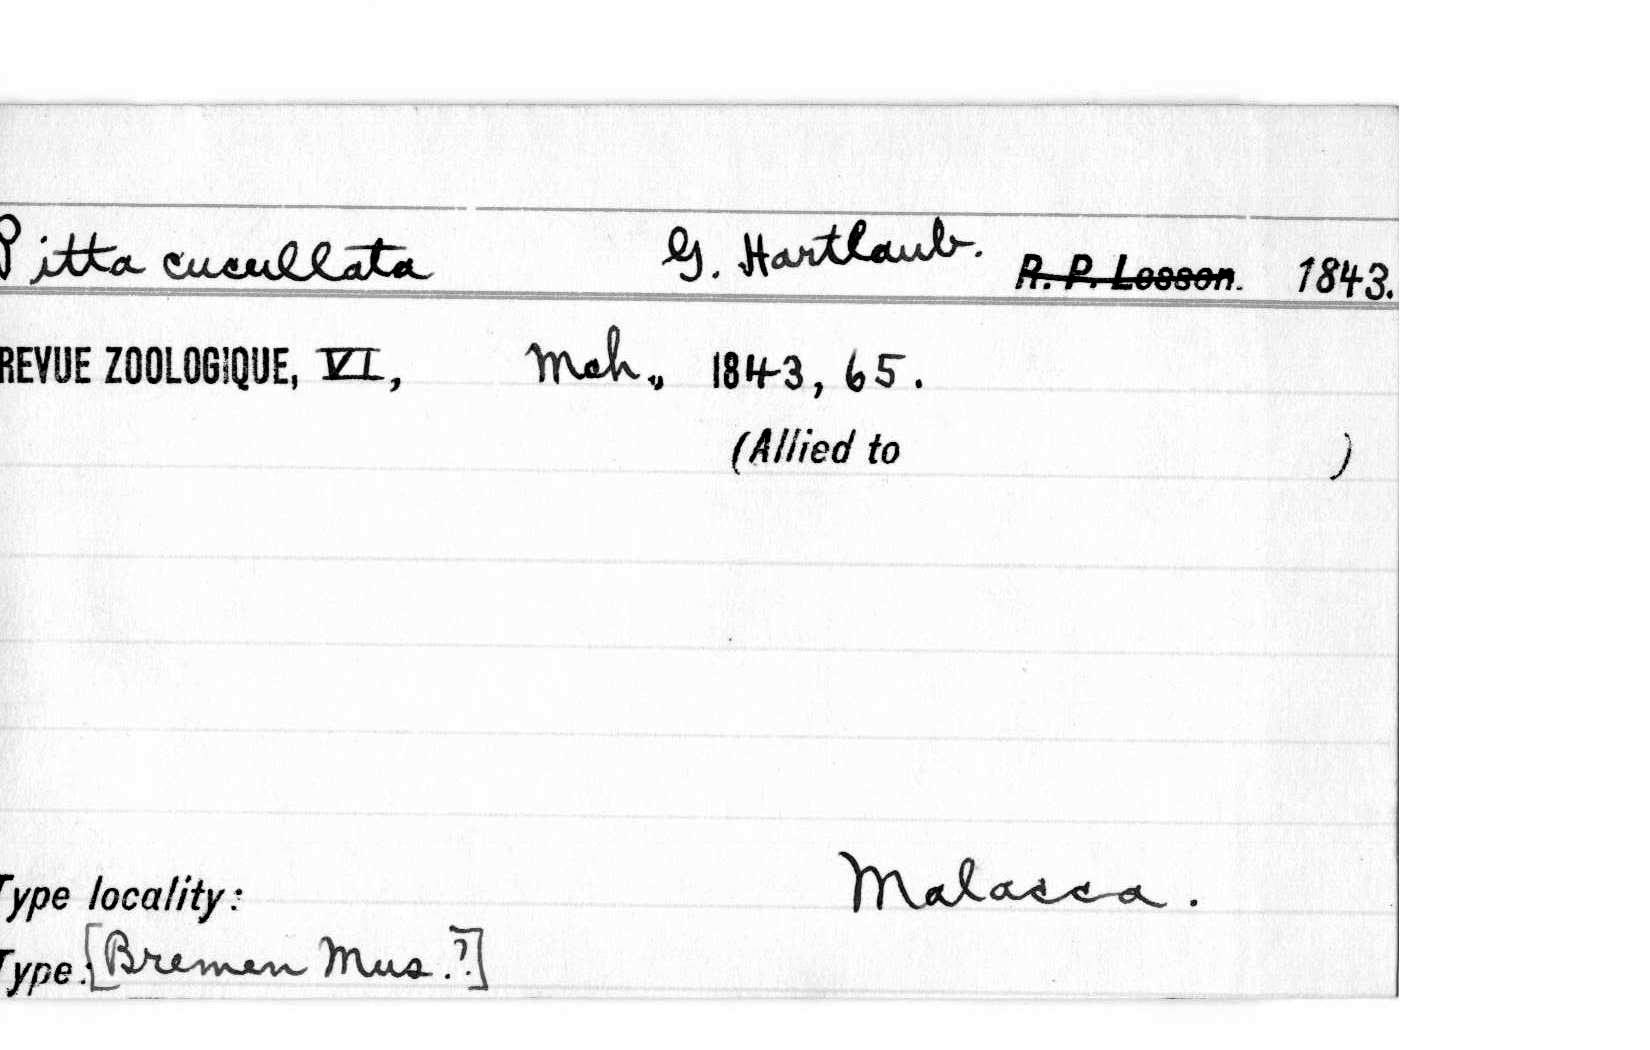 Pitta cucullata G. Hartlaub. R. P. Lesson. 1843.
REVUE ZOOLOGIQUE, VI, Mch., 1843, 65.
(Allied to )
Type locality: Malacca.
Type: [Bremen Mus.?]